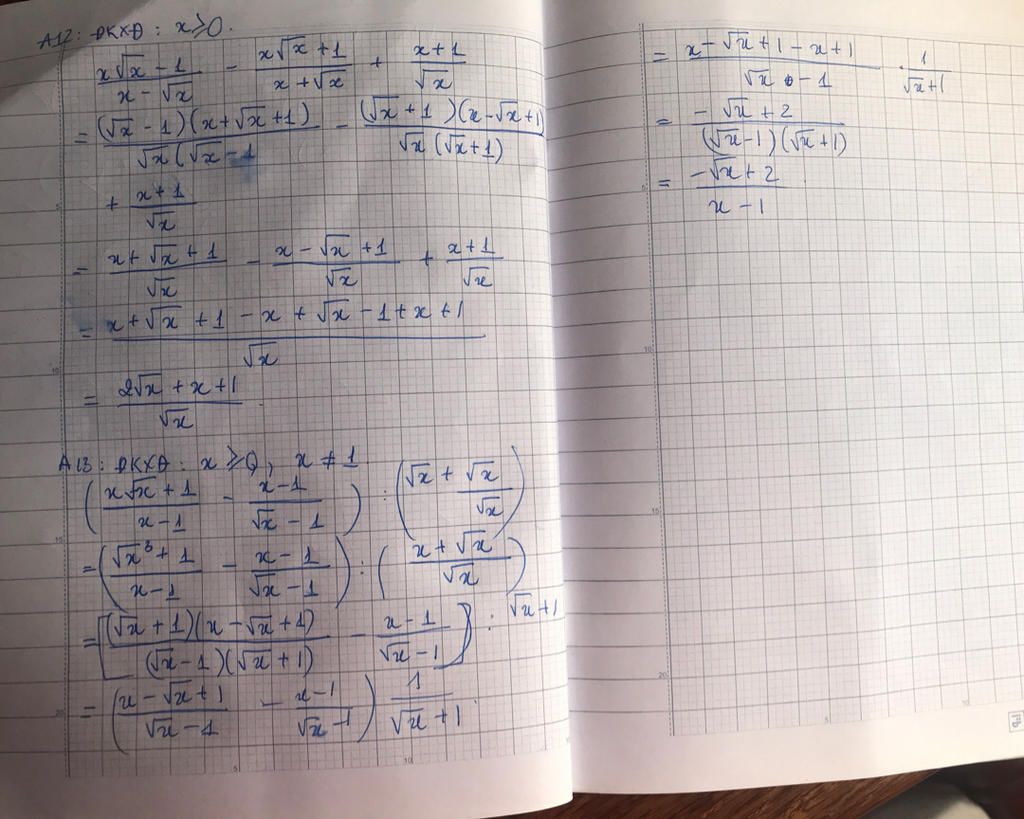 A12: ĐKXĐ: x ≥ 0.
(x√x - 1)/(x - √x) - (x√x + 1)/(x + √x) + (x + 1)/√x
= (√x - 1)(x + √x + 1)/√x(√x - 1 - (√x + 1)(x - √x + 1)/√x(√x + 1)
+ (x + 1)/√x
= (x + √x + 1)/√x - (x - √x + 1)/√x + (x + 1)/√x
= (x + √x + 1 - x + √x - 1 + x + 1)/√x
= (2√x + x + 1)/√x
A13: ĐKXĐ: x ≥ 0, x ≠ 1
((x√x + 1)/(x - 1) - (x - 1)/(√x - 1)) : (√x + √x/√x)
= ((√x³ + 1)/(x - 1) - (x - 1)/(√x - 1)) : ((x + √x)/√x)
= [(√x + 1)(x - √x + 1)/(√x - 1)(√x + 1) - (x - 1)/(√x - 1)] : √x + 1
= ((x - √x + 1)/(√x - 1) - (x - 1)/(√x - 1)) 1/(√x + 1)
= (x - √x + 1 - x + 1)/(√x - 1) · 1/(√x + 1)
= (-√x + 2)/(√x - 1)(√x + 1)
= (-√x + 2)/(x - 1)